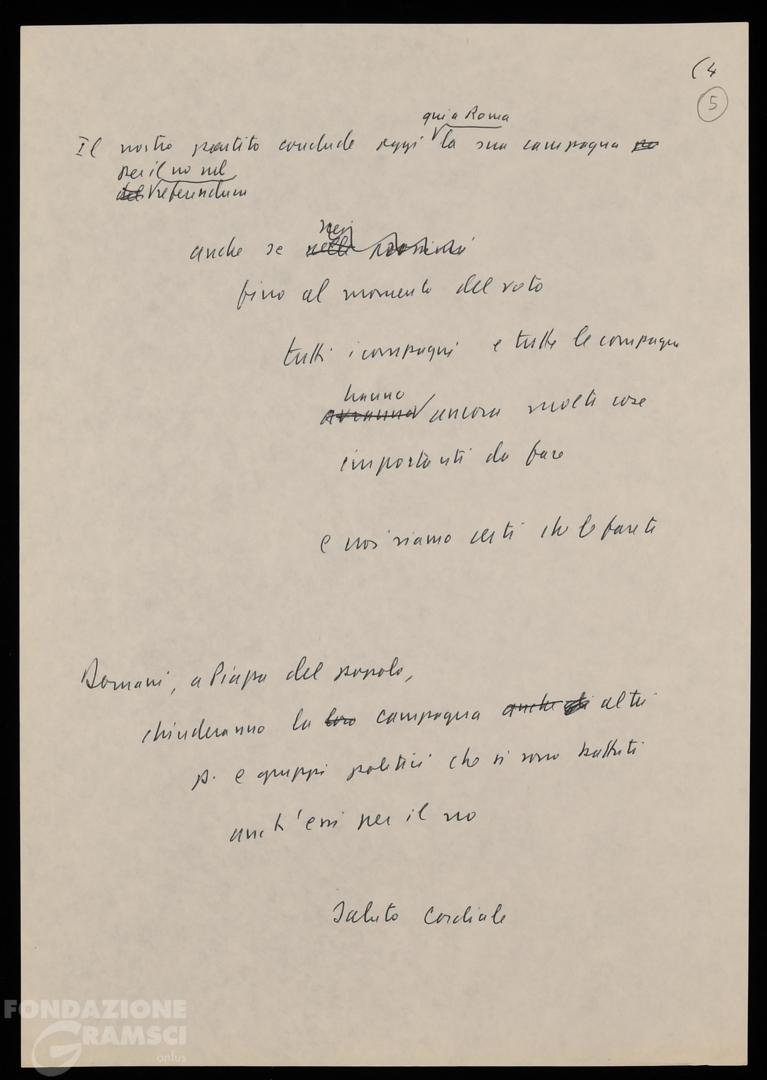 (4
5
qui a Roma
Il nostro partito conclude oggi la sua campagna no
per il no nel
del referendum
nei
anche se nelle prossimi
fino al momento del voto
tutti i compagni e tutte le compagne
hanno
avranno ancora molte cose
importanti da fare
e noi siamo certi che le farete
Domani, a Piazza del popolo,
chiuderanno la loro campagna anche gli altri
p. e gruppi politici che si sono battuti
anch'essi per il no
Saluto cordiale
FONDAZIONE
GRAMSCI
onlus